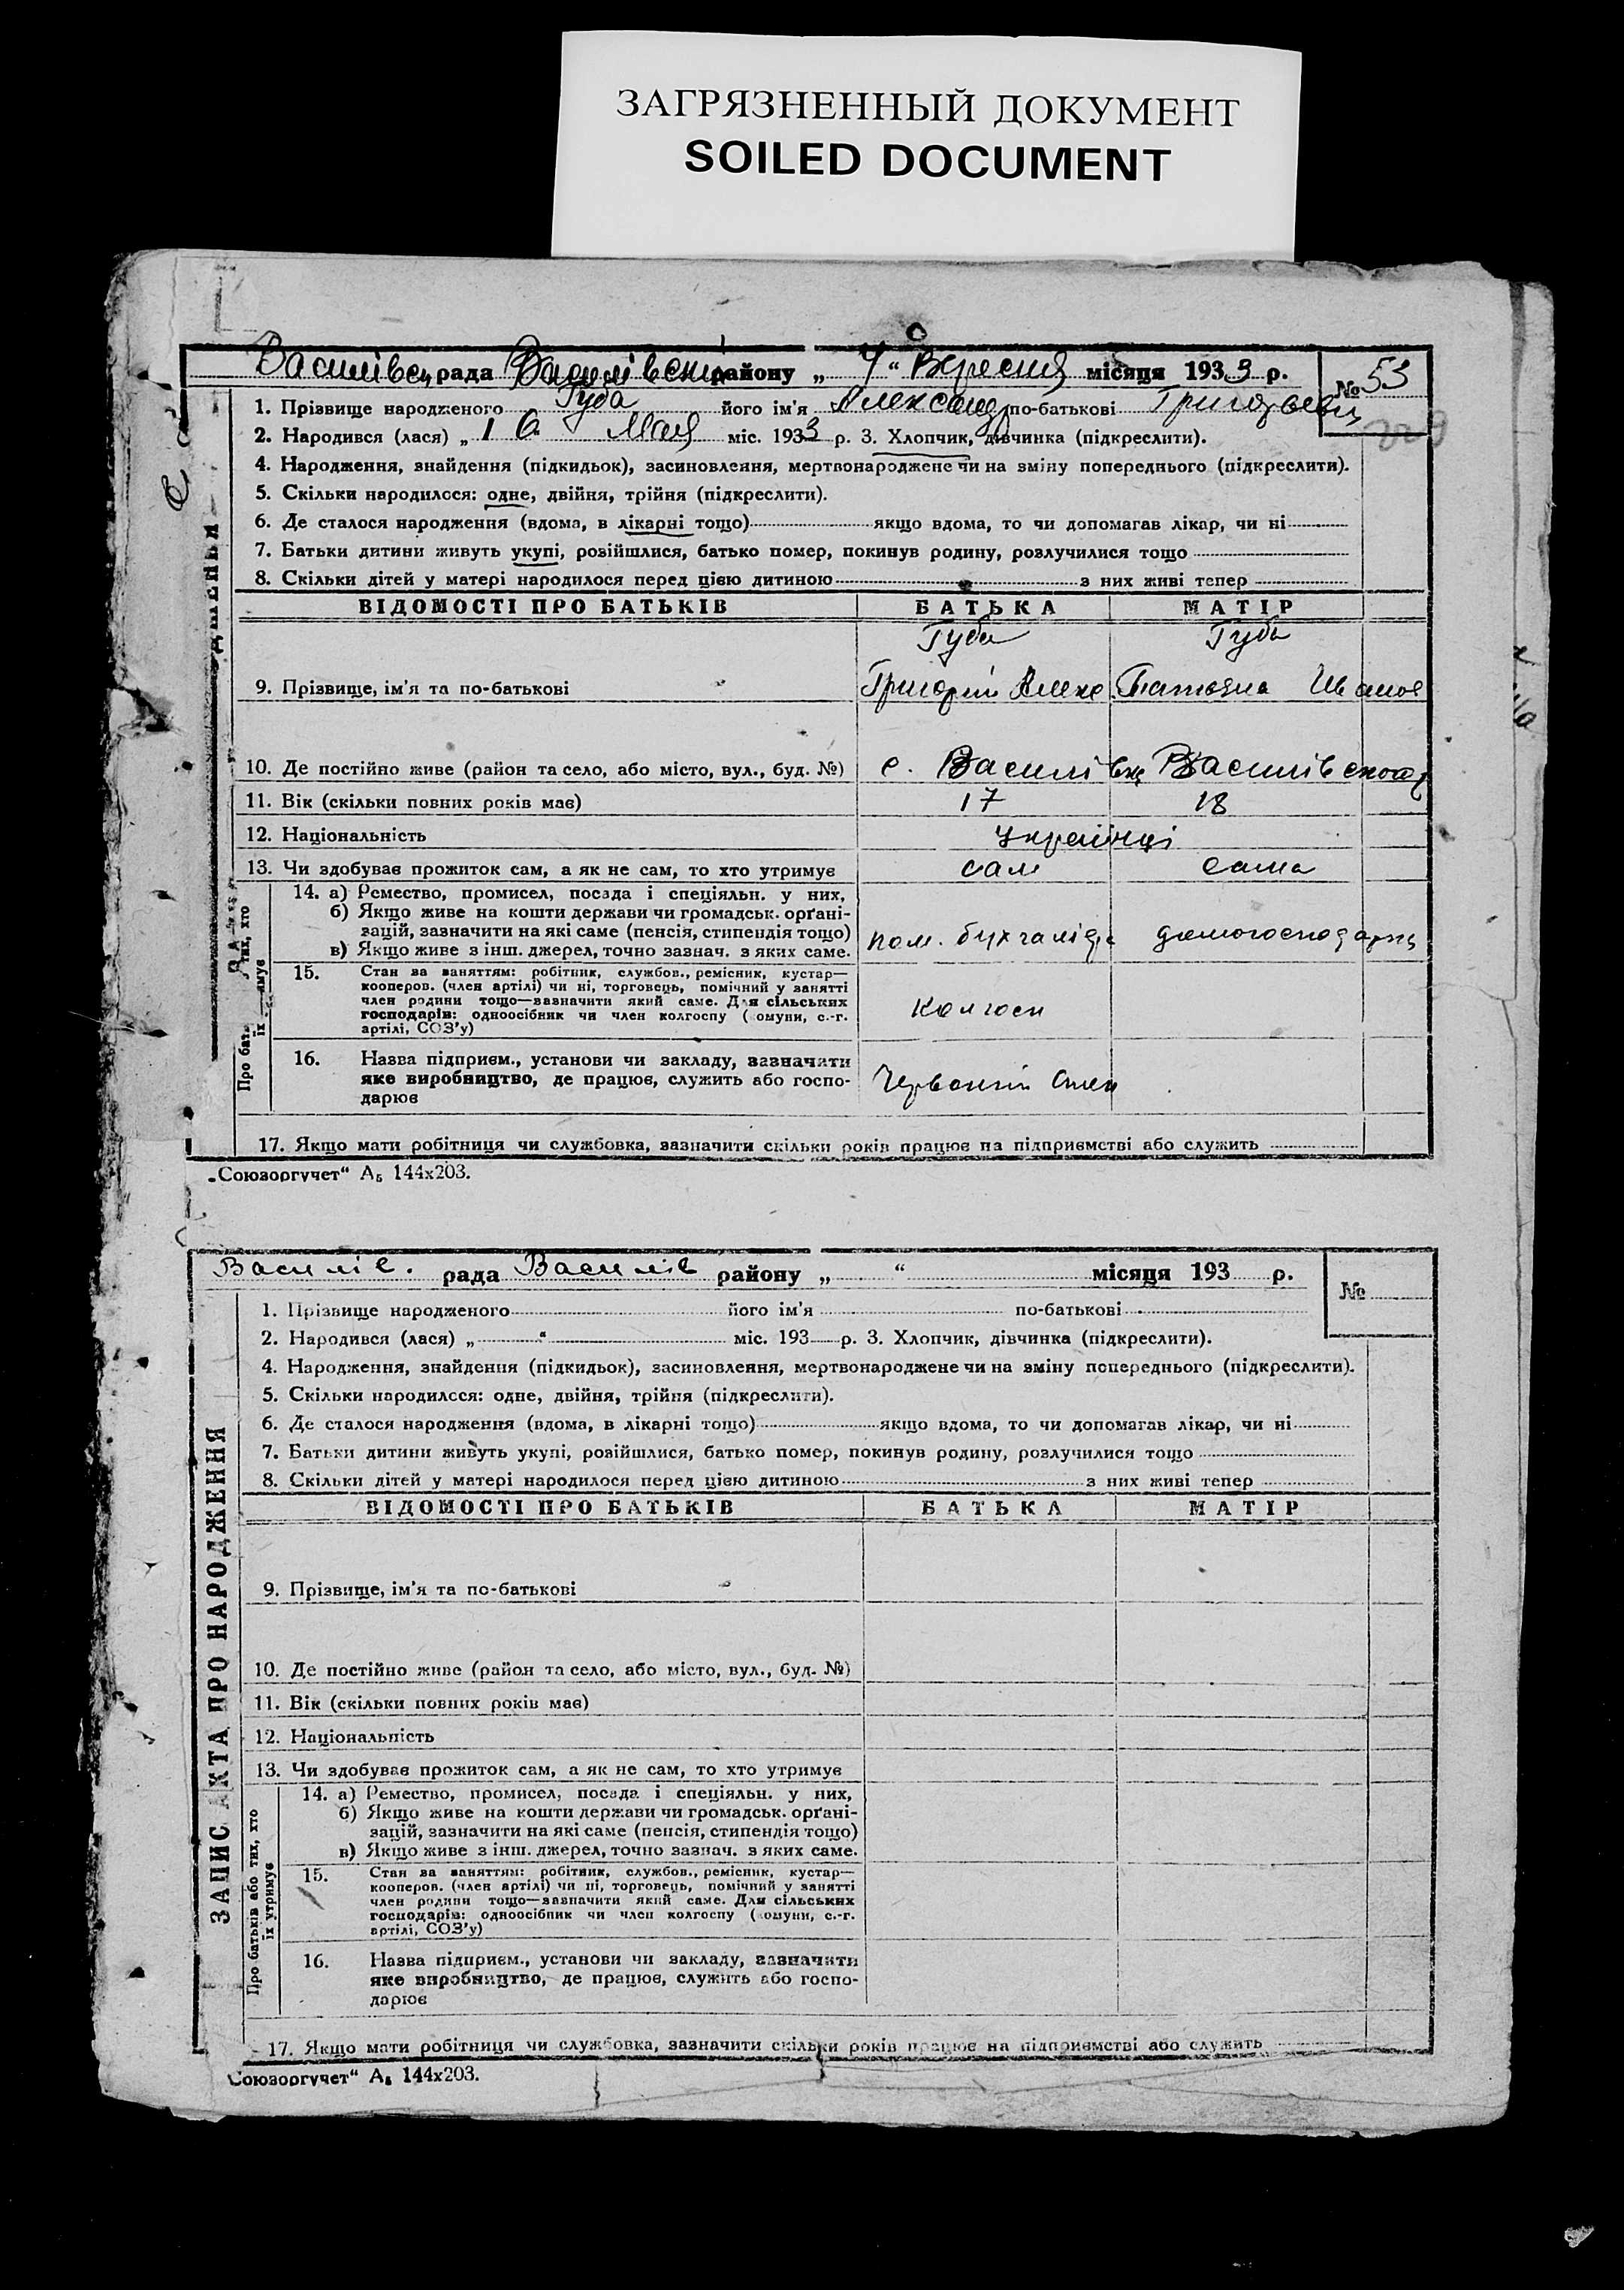 ЗАГРЯЗНЕННЫЙ ДОКУМЕНТ
SOILED DOCUMENT
рада району „ 4 “ Вересня місяця 1933 р. № 53
1. Прізвище народженого Губа його ім'я Александр по-батькові
2. Народився (лася) „ 16 Мая міс. 1933 р. 3. Хлопчик, дівчинка (підкреслити).
4. Народження, знайдення (підкидьок), засиновлення, мертвонароджене чи на зміну попереднього (підкреслити).
5. Скільки народилося: одне, двійня, трійня (підкреслити).
6. Де сталося народження (вдома, в лікарні тощо) якщо вдома, то чи допомагав лікар, чи ні
7. Батьки дитини живуть укупі, розійшлися, батько помер, покинув родину, розлучилися тощо
8. Скільки дітей у матері народилося перед цією дитиною з них живі тепер
ВІДОМОСТІ ПРО БАТЬКІВ БАТЬКА МАТІР
Губа Губа
9. Прізвище, ім'я та по-батькові Григорій Алекс. Татьяна Иванов
10. Де постійно живе (район та село, або місто, вул., буд. №) с.
11. Вік (скільки повних років має) 17 18
12. Національність Українці
13. Чи здобуває прожиток сам, а як не сам, то хто утримує сам сама
14. а) Ремество, промисел, посада і спеціяльн. у них,
б) Якщо живе на кошти держави чи громадськ. орґані-
зацій, зазначити на які саме (пенсія, стипендія тощо)
в) Якщо живе з інш. джерел, точно зазнач. з яких саме.
пом.
15. Стан за заняттям: робітник, службов., ремісник, кустар—
кооперов. (член артілі) чи ні, торговець, помічний у занятті
член родини тощо—зазначити який саме. Для сільських
господарів: одноосібник чи член колгоспу ( омуни, с.-г.
артілі, СОЗ'у)
Колгосп
16. Назва підприєм., установи чи закладу, зазначити
яке виробництво, де працює, служить або госпо-
дарює
Червоний
17. Якщо мати робітниця чи службовка, зазначити скільки років працює на підприємстві або служить
„Союзоргучет“ А₅ 144х203.
Василів. рада Василів району „ “ місяця 193 р. №
1. Прізвище народженого його ім'я по-батькові
2. Народився (лася) „ “ міс. 193 р. 3. Хлопчик, дівчинка (підкреслити).
4. Народження, знайдення (підкидьок), засиновлення, мертвонароджене чи на зміну попереднього (підкреслити).
5. Скільки народилося: одне, двійня, трійня (підкреслити).
6. Де сталося народження (вдома, в лікарні тощо) якщо вдома, то чи допомагав лікар, чи ні
7. Батьки дитини живуть укупі, розійшлися, батько помер, покинув родину, розлучилися тощо
8. Скільки дітей у матері народилося перед цією дитиною з них живі тепер
ВІДОМОСТІ ПРО БАТЬКІВ БАТЬКА МАТІР
9. Прізвище, ім'я та по-батькові
10. Де постійно живе (район та село, або місто, вул., буд. №)
11. Вік (скільки повних років має)
12. Національність
13. Чи здобуває прожиток сам, а як не сам, то хто утримує
14. а) Ремество, промисел, посада і спеціяльн. у них,
б) Якщо живе на кошти держави чи громадськ. орґані-
зацій, зазначити на які саме (пенсія, стипендія тощо)
в) Якщо живе з інш. джерел, точно зазнач. з яких саме.
15. Стан за заняттям: робітник, службов., ремісник, кустар—
кооперов. (член артілі) чи ні, торговець, помічний у занятті
член родини тощо—зазначити який саме. Для сільських
господарів: одноосібник чи член колгоспу ( омуни, с.-г.
артілі, СОЗ'у)
16. Назва підприєм., установи чи закладу, зазначити
яке виробництво, де працює, служить або госпо-
дарює
17. Якщо мати робітниця чи службовка, зазначити скільки років працює на підприємстві або служить
ЗАПИС АКТА ПРО НАРОДЖЕННЯ
Про батьків або тих, хто
їх утримує
Союзоргучет“ А₅ 144х203.